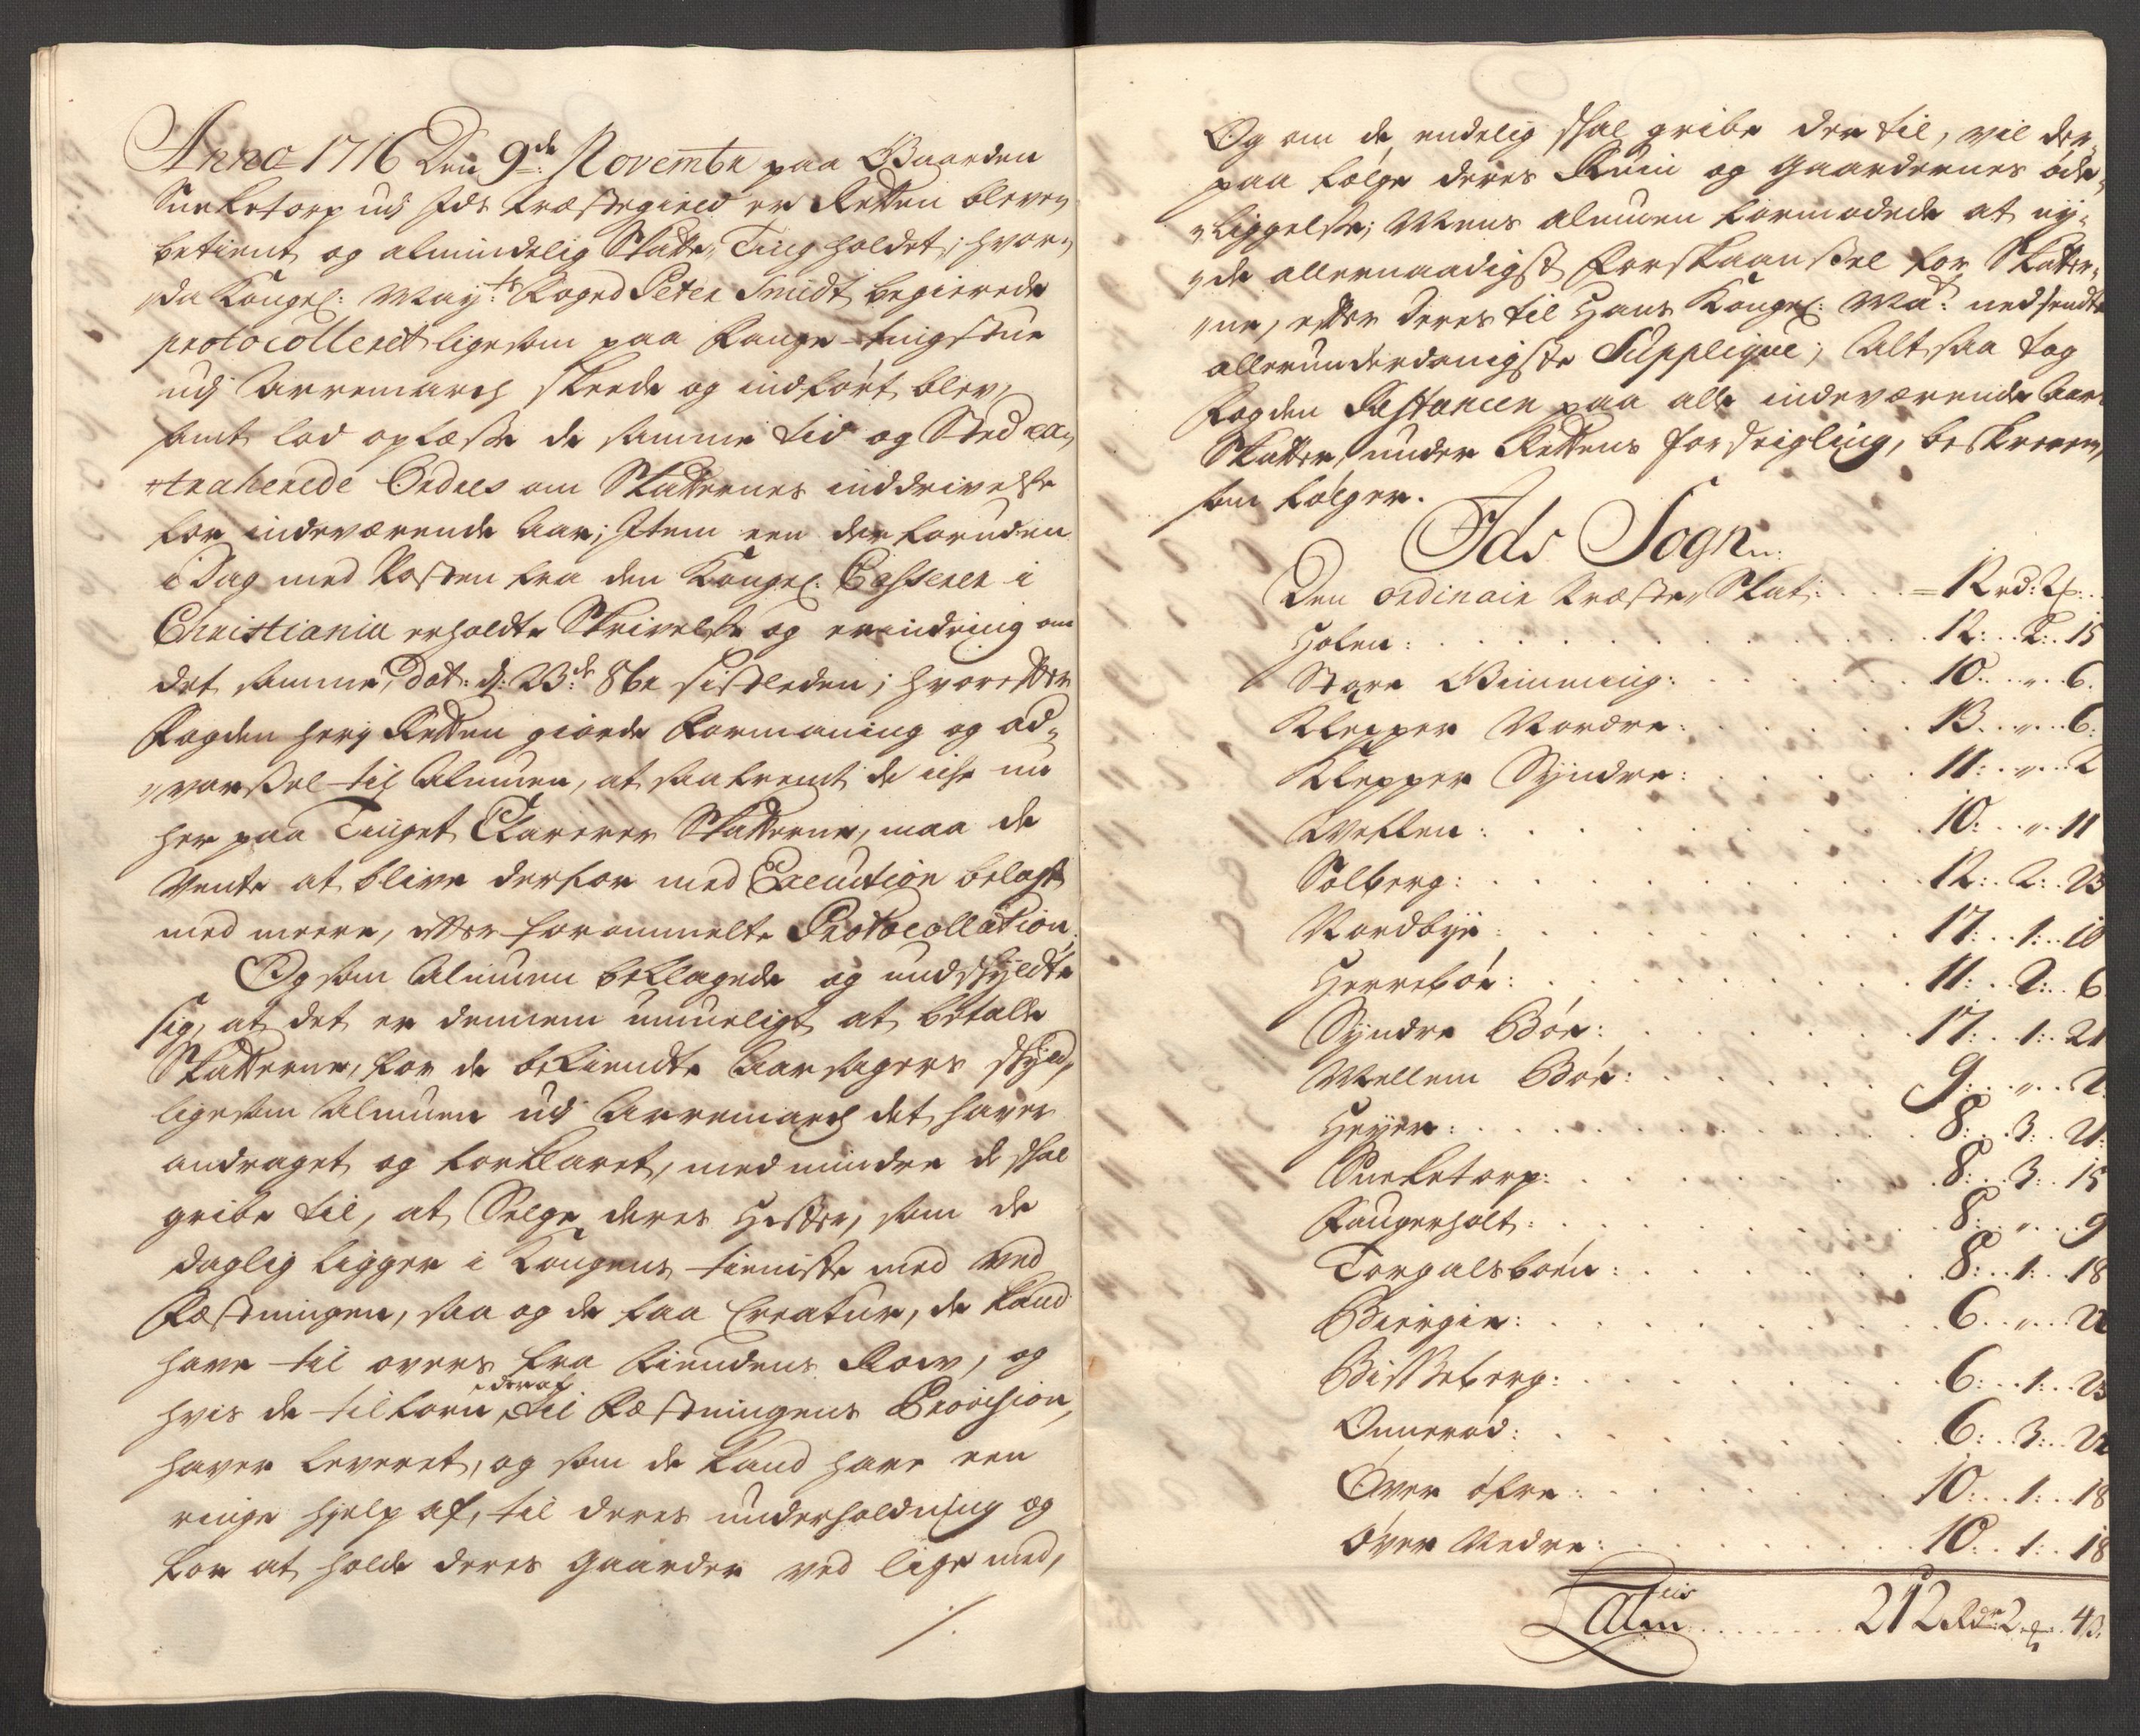 Anno 1716 Den 9de: Novembr paa Gaarden
Sneketorp udj Ids Præstegield er Retten bleven
betient og almindelig Skatte-Ting holdet; hvor-
"da Kongel: Mayts: Foged Peter Smidt begierede
protocolleret ligesom paa Fange-tingstue
udj Arremarch skeede og indført blev,
samt lod oplæsse de samme tid og Sted ex-
"traherede Ordres om Skatternes inddrivelsse
for indeværende Aar; Item een derforuden
i Dag med Posten fra den Kongel: Casserer i
Christiania erholdte Skrivelsse og erindring om
det samme, dat: d: 23de 8br sistleden; hvorefter
Fogden herj Retten giorde Formaning og ad-
"varssel til Almuen, at saafremt de iche nu
her paa Tinget Clarerer Skatterne, maa de
Vente at blive derfor med Execution belagt
med meere, efter forommelte Protocollation.
Og som Almuen beklagede og undskyldte
sig, at det er dennem umueligt at betalle
Skatterne, for de bekiendte Aarsagers skyld,
ligesom Almuen udj Arremarch det haver
andraget og forklaret, med mindre de skal
gribe til, at Selge deres Hester, som de
daglig ligger i Kongens tieniste med ved
Fæstningen, saa og de faa Creatur, de kand
have til overs fra Fiendens Rov, og
hvis de tilforn deraf til Fæstningens Provision,
haver leveret, og som de kand have een
ringe hielp af, til deres underholdning og
for at holde deres Gaarder ved lige med,
./.
Og om de endelig skal gribe der til, vil der-
paa følge deres Ruin og Gaardernes øde-
"liggelse; Mens almuen formodede at ny-
"de allernaadigst forskaanssel for Skatter-
"ne, efter deres til Hans Kongel: Ma: nedsendte
allerunderdanigste Supplique; Alt saa tog
Fogden Restancen paa alle indeværende Aars
Skatter, under Rettens forseigling, beskreven,
som følger.
Ids Sogn:
Den ordinair Præste Skat: . . = 12 rd: 2 :
Holen: . . . 12: . 2: . 15
Store Gimming: . . . 10: . " . 6.
Klepper Nordre: . . . 13. . " . 6:
Klepper Syndre: . . . 11: . " . 2
Weklen: . . . 10: . " . 11
Solberg: . . . 12: . 2: . 23
Nordbye: . . . 17: . 1: . 10
Herrebøe: . . . 11: . 2: . 6
Syndre Bøe: . . . 17: . 1: . 21
Mellem Bøe: . . . 9: . " . 2:
Heyer: . . . 8: . 3: . 21:
Sneketorp: . . . 8: . 3: . 15
Fangerholt: . . . 8: . " . 9
Torgalsbøen: . . . 8: . 1: . 18
Biørgin: . . . 6 . " . 22
Biskeberg: . . . 6: . 1: . 23
Onnerød: . . . 6: . 3: . 22
Over øfre: . . . 10: . 1: . 18
Over Nedre: . . . 10: . 1: . 18
Latus . . . 212 Rdr: 2 . 4 β: